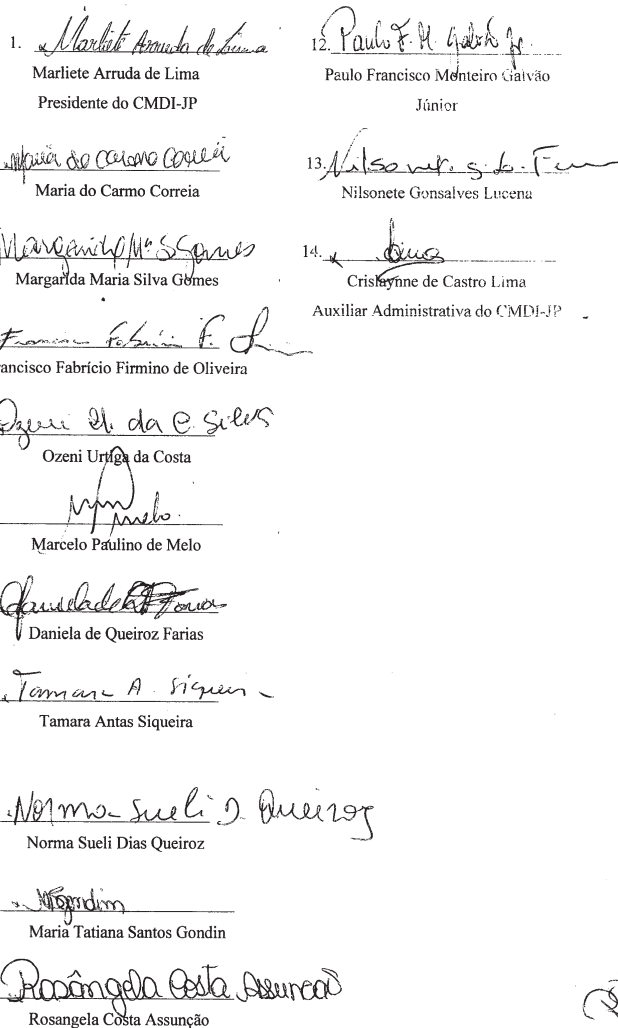 1. Marliete Arruda de Lima
Marliete Arruda de Lima
Presidente do CMDI-JP
Maria do Carmo Correia
Maria do Carmo Correia
Margarida Mª S Gomes
Margarida Maria Silva Gomes
Francisco Fabrício F.
ancisco Fabrício Firmino de Oliveira
Ozeni U. da C. Silva
Ozeni Urtiga da Costa
Melo
Marcelo Paulino de Melo
Daniela de Farias
Daniela de Queiroz Farias
Tamara A. Siqueira
Tamara Antas Siqueira
Norma Sueli D. Queiroz
Norma Sueli Dias Queiroz
MTGondim
Maria Tatiana Santos Gondin
Rosângela Costa Assunção
Rosangela Costa Assunção
12. Paulo F. M. Galvão Jr.
Paulo Francisco Monteiro Galvão
Júnior
13. Nilsonete G. L.
Nilsonete Gonsalves Lucena
14. Lima
Crislaynne de Castro Lima
Auxiliar Administrativa do CMDI-JP